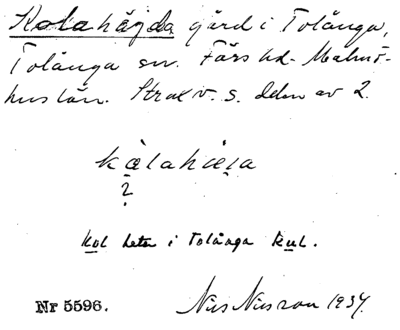 Kolahäjda gård i Tolånga,
Tolånga sn. Färs hd. Malmö-
hus län. Strax v. s. delen av 2.
kòlahäi̯a
?
Kol heter i Tolånga kul.
Nr 5596. Nils Nilsson 1934.